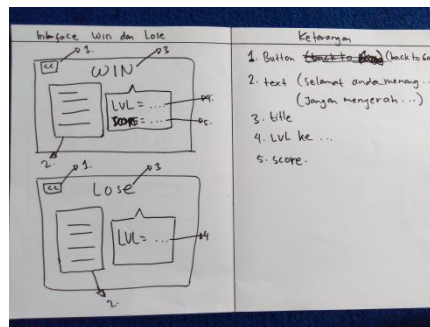 Interface Win dan Lose
1.
3
<<
WIN
LVL = ....
4.
SCORE = ....
5.
2.
1.
3
<<
Lose
LVL = ...
4
2.
Keterangan
1. Button (back to
2. text (Selamat anda menang ..
(Jangan menyerah ...)
3. title
4. LVL ke ...
5. score.